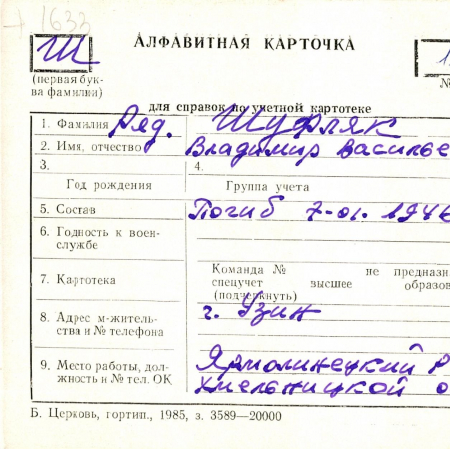 1633
Ш
АЛФАВИТНАЯ КАРТОЧКА
1
№
(первая бук-
ва фамилии)
для справок по учетной картотеке
1. Фамилия Ряд. Шуфляк
2. Имя, отчество Владимир Василье
3. 4.
Год рождения Группа учета
5. Состав Погиб 7-01. 1946
6. Годность к воен-
службе
7. Картотека Команда № не предназн
спецучет высшее образов
(подчеркнуть)
8. Адрес м-житель-
ства и № телефона г. Узин
9. Место работы, дол-
жность и № тел. ОК Ярмолинецкий Р
Хмельницкой о
Б. Церковь, гортип., 1985, з. 3589—20000